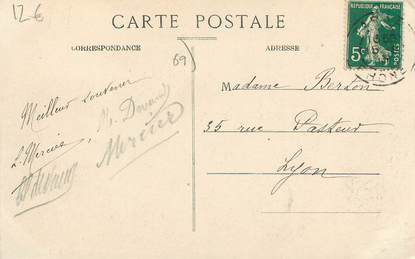 12-6
CARTE POSTALE
CORRESPONDANCE
ADRESSE
69
RÉPUBLIQUE FRANÇAISE
5c
POSTES
Meilleur souvenir
L. Mercier
Mercier
Madame
35 rue Pasteur
Lyon